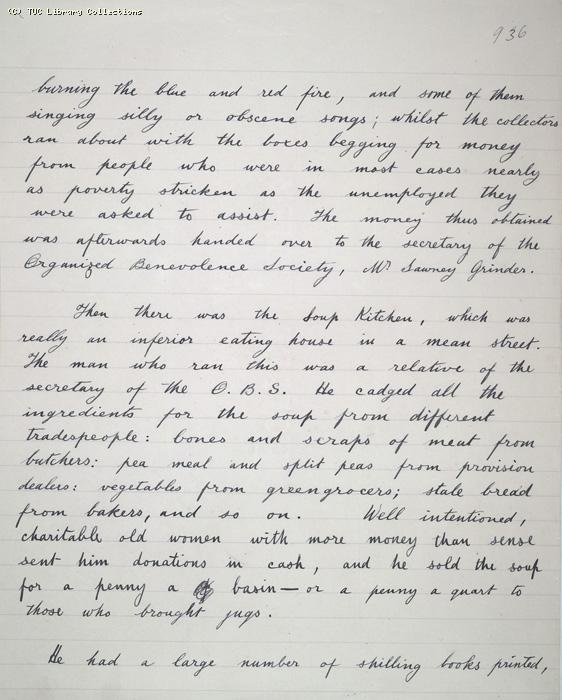 (C) TUC Library Collections
936
burning the blue and red fire, and some of them
singing silly or obscene songs; whilst the collectors
ran about with the boxes begging for money
from people who were in most cases nearly
as poverty stricken as the unemployed they
were asked to assist. The money thus obtained
was afterwards handed over to the secretary of the
Organized Benevolence Society, Mr Sawney Grinder.
Then there was the Soup Kitchen, which was
really an inferior eating house in a mean street.
The man who ran this was a relative of the
secretary of the O.B.S. He cadged all the
ingredients for the soup from different
tradespeople: bones and scraps of meat from
butchers: pea meal and split peas from provision
dealers: vegetables from greengrocers; stale bread
from bakers, and so on. Well intentioned,
charitable old women with more money than sense
sent him donations in cash, and he sold the soup
for a penny a basin—or a penny a quart to
those who brought jugs.
He had a large number of shilling books printed,